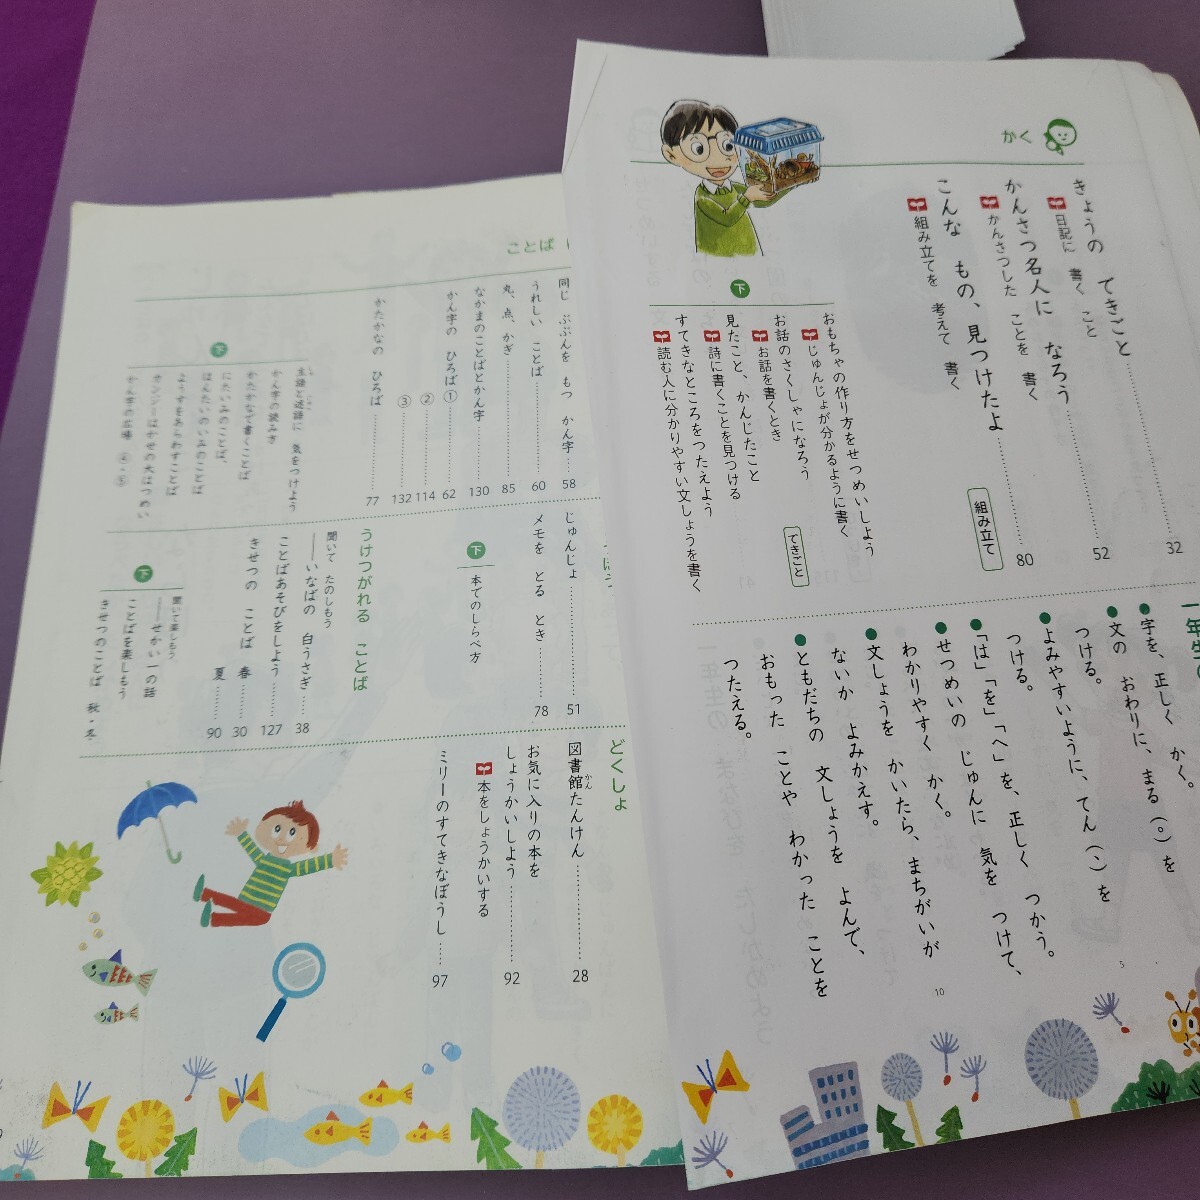 かく
きょうの できごと 32
日記に 書く こと
かんさつ名人に なろう 52
かんさつした ことを 書く
こんな もの、見つけたよ 80
組み立てを 考えて 書く
組み立て
下
おもちゃの作り方をせつめいしよう
じゅんじょが分かるように書く
お話のさくしゃになろう
お話を書くとき
できごと
見たこと、かんじたこと
詩に書くことを見つける
すてきなところをつたえよう
読む人に分かりやすい文しょうを書く
●字を、正しく かく。
●文の おわりに、まる(。)を
つける。
●よみやすいように、てん(、)を
つける。
●「は」「を」「へ」を、正しく つかう。
●せつめいの じゅんに 気を つけて、
わかりやすく かく。
●文しょうを かいたら、まちがいが
ないか よみかえす。
●ともだちの 文しょうを よんで、
おもった ことや わかった ことを
つたえる。
5
10
ことば
同じ ぶぶんを もつ かん字 58
うれしい ことば 60
丸、点、かぎ 85
なかまのことばとかん字 130
かん字の ひろば① 62
② 114
③ 132
かたかなの ひろば 77
下
主語と述語に 気をつけよう
かん字の読み方
かたかなで書くことば
にたいみのことば、
はんたいのいみのことば
ようすをあらわすことば
カンジーはかせの大はつめい
かん字の広場 ④・⑤
じゅんじょ 51
メモを とる とき 78
下
本でのしらべ方
うけつがれる ことば
聞いて たのしもう
――いなばの 白うさぎ 38
ことばあそびをしよう 127
きせつの ことば 春 30
夏 90
下
聞いて楽しもう
――せかい一の話
ことばを楽しもう
きせつのことば 秋・冬
どくしょ
図書館たんけん 28
お気に入りの本を
しょうかいしよう 92
本をしょうかいする
ミリーのすてきなぼうし 97